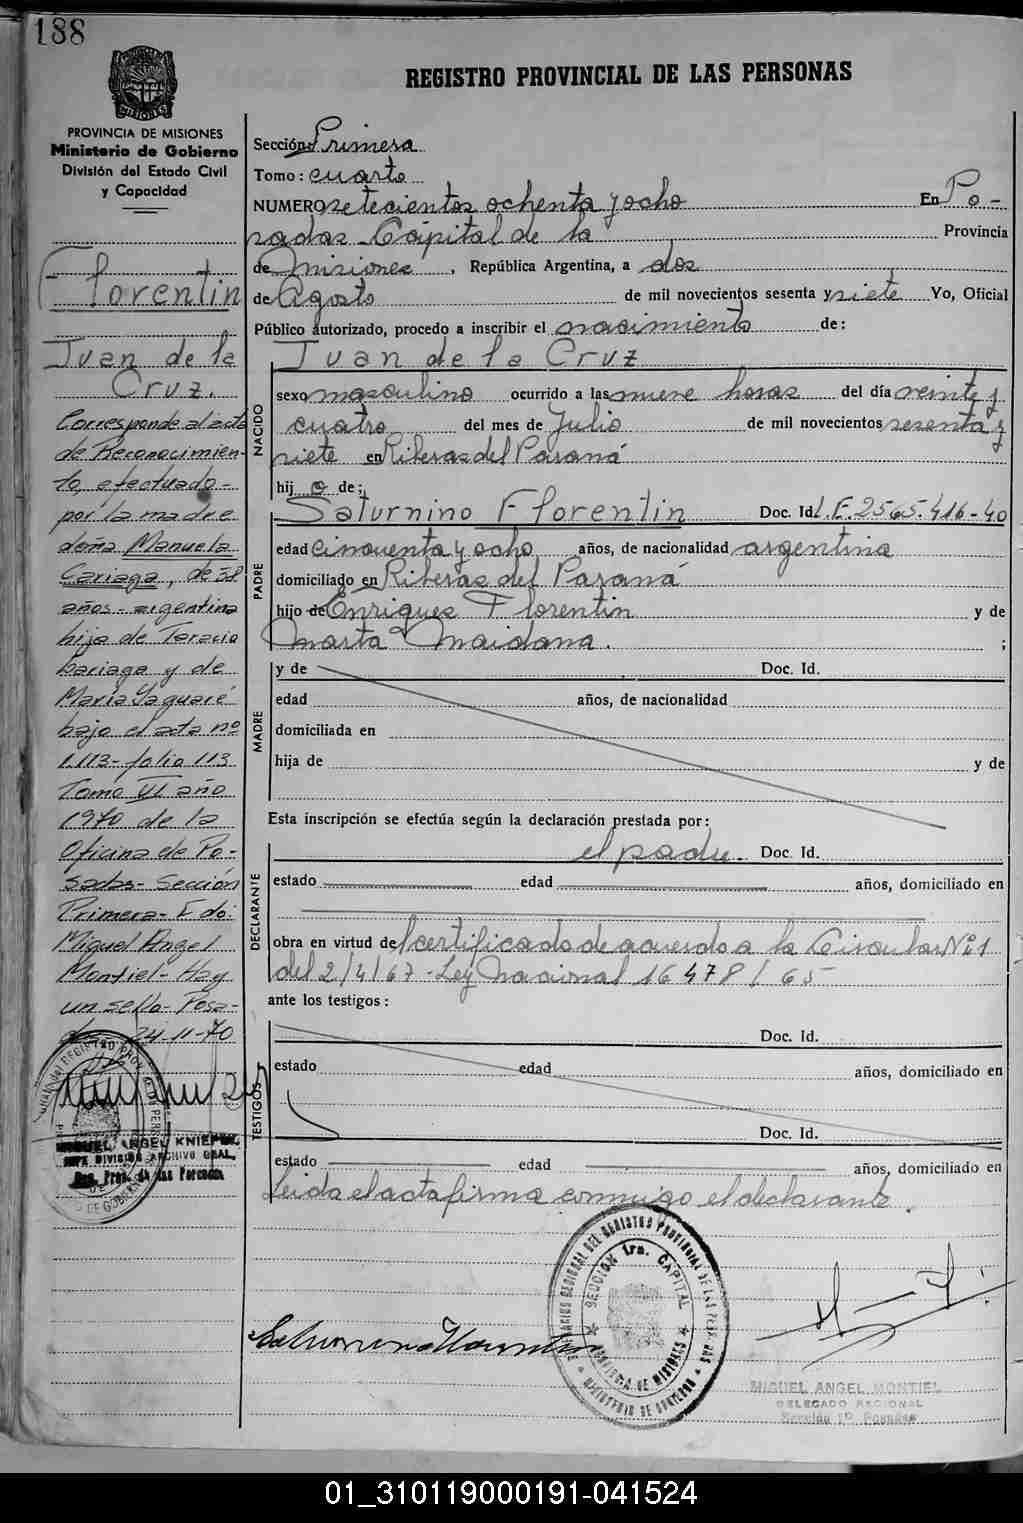 188
REGISTRO PROVINCIAL DE LAS PERSONAS
PROVINCIA DE MISIONES
Ministerio de Gobierno
División del Estado Civil
y Capacidad
Florentin
Juan de la
Cruz.
Corresponde al acta
de Reconocimien-
to, efectuado-
por la madre
doña Manuela
Cariaga, de 38
años- argentina
hija de
Cariaga y de
María Yaguaré
bajo el acta nº
1.113- folio 113
Tomo VI año
1970 de la
Oficina de Po-
sadas- Sección
Primera- Fdo:
Miguel Angel
Montiel- Hay
un sello- Posa-
das 24-11-70
MIGUEL ANGEL KNIEPER
JEFE DIVISION ARCHIVO GRAL.
Reg. Prov. de las Personas
Sección: Primera
Tomo: cuarto
NUMERO setecientos ochenta y ocho En Po-
sadas-Capital de la Provincia
de Misiones, República Argentina, a dos
de Agosto de mil novecientos sesenta y siete Yo, Oficial
Público autorizado, procedo a inscribir el nacimiento de:
NACIDO
Juan de la Cruz
sexo masculino ocurrido a las nueve horas del día veinte y
cuatro del mes de Julio de mil novecientos sesenta y
siete en Riberas del Paraná
hijo de:
PADRE
Saturnino Florentin Doc. Id. L.E. 2565.416-40
edad cincuenta y ocho años, de nacionalidad argentina
domiciliado en Riberas del Paraná
hijo de Enrique Florentin y de
Marta Maidana. ;
MADRE
y de Doc. Id.
edad años, de nacionalidad
domiciliada en
hija de y de
Esta inscripción se efectúa según la declaración prestada por:
DECLARANTE
el padre. Doc. Id.
estado edad años, domiciliado en
obra en virtud del certificado de acuerdo a la Circular Nº 1
del 2/4/67-Ley Nacional 16478/65
ante los testigos:
TESTIGOS
Doc. Id.
estado edad años, domiciliado en
Doc. Id.
estado edad años, domiciliado en
Leida el acta firma conmigo el declarante.
Saturnino Florentin
SECCION 1ra. CAPITAL
PROVINCIA DE MISIONES
MINISTERIO DE GOBIERNO
MIGUEL ANGEL MONTIEL
DELEGADO REGIONAL
Sección 1ª Posadas
01_310119000191-041524